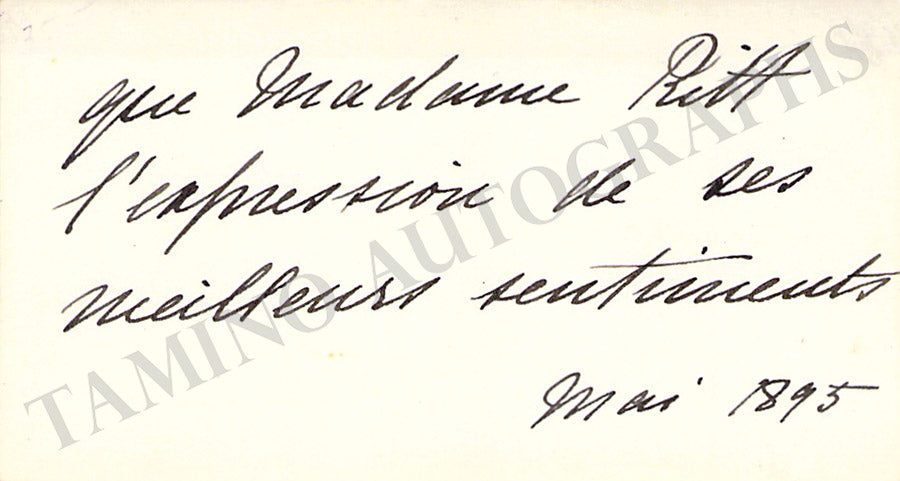 que Madame Ritt
l'expression de ses
meilleurs sentiments
Mai 1895
TAMINO AUTOGRAPHS